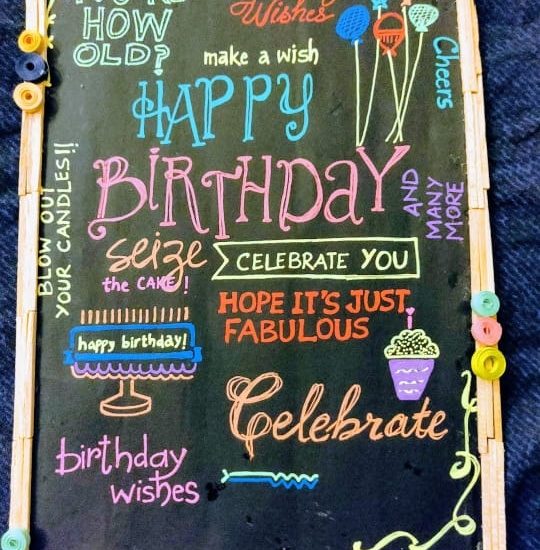 HOW
OLD?
Wishes
make a wish
Cheers
HAPPY
BIRTHDAY
AND
MANY
MORE
BLOW OUT
YOUR CANDLES!!
seize
the CAKE!
CELEBRATE YOU
HOPE IT'S JUST
FABULOUS
happy birthday!
Celebrate
birthday
wishes